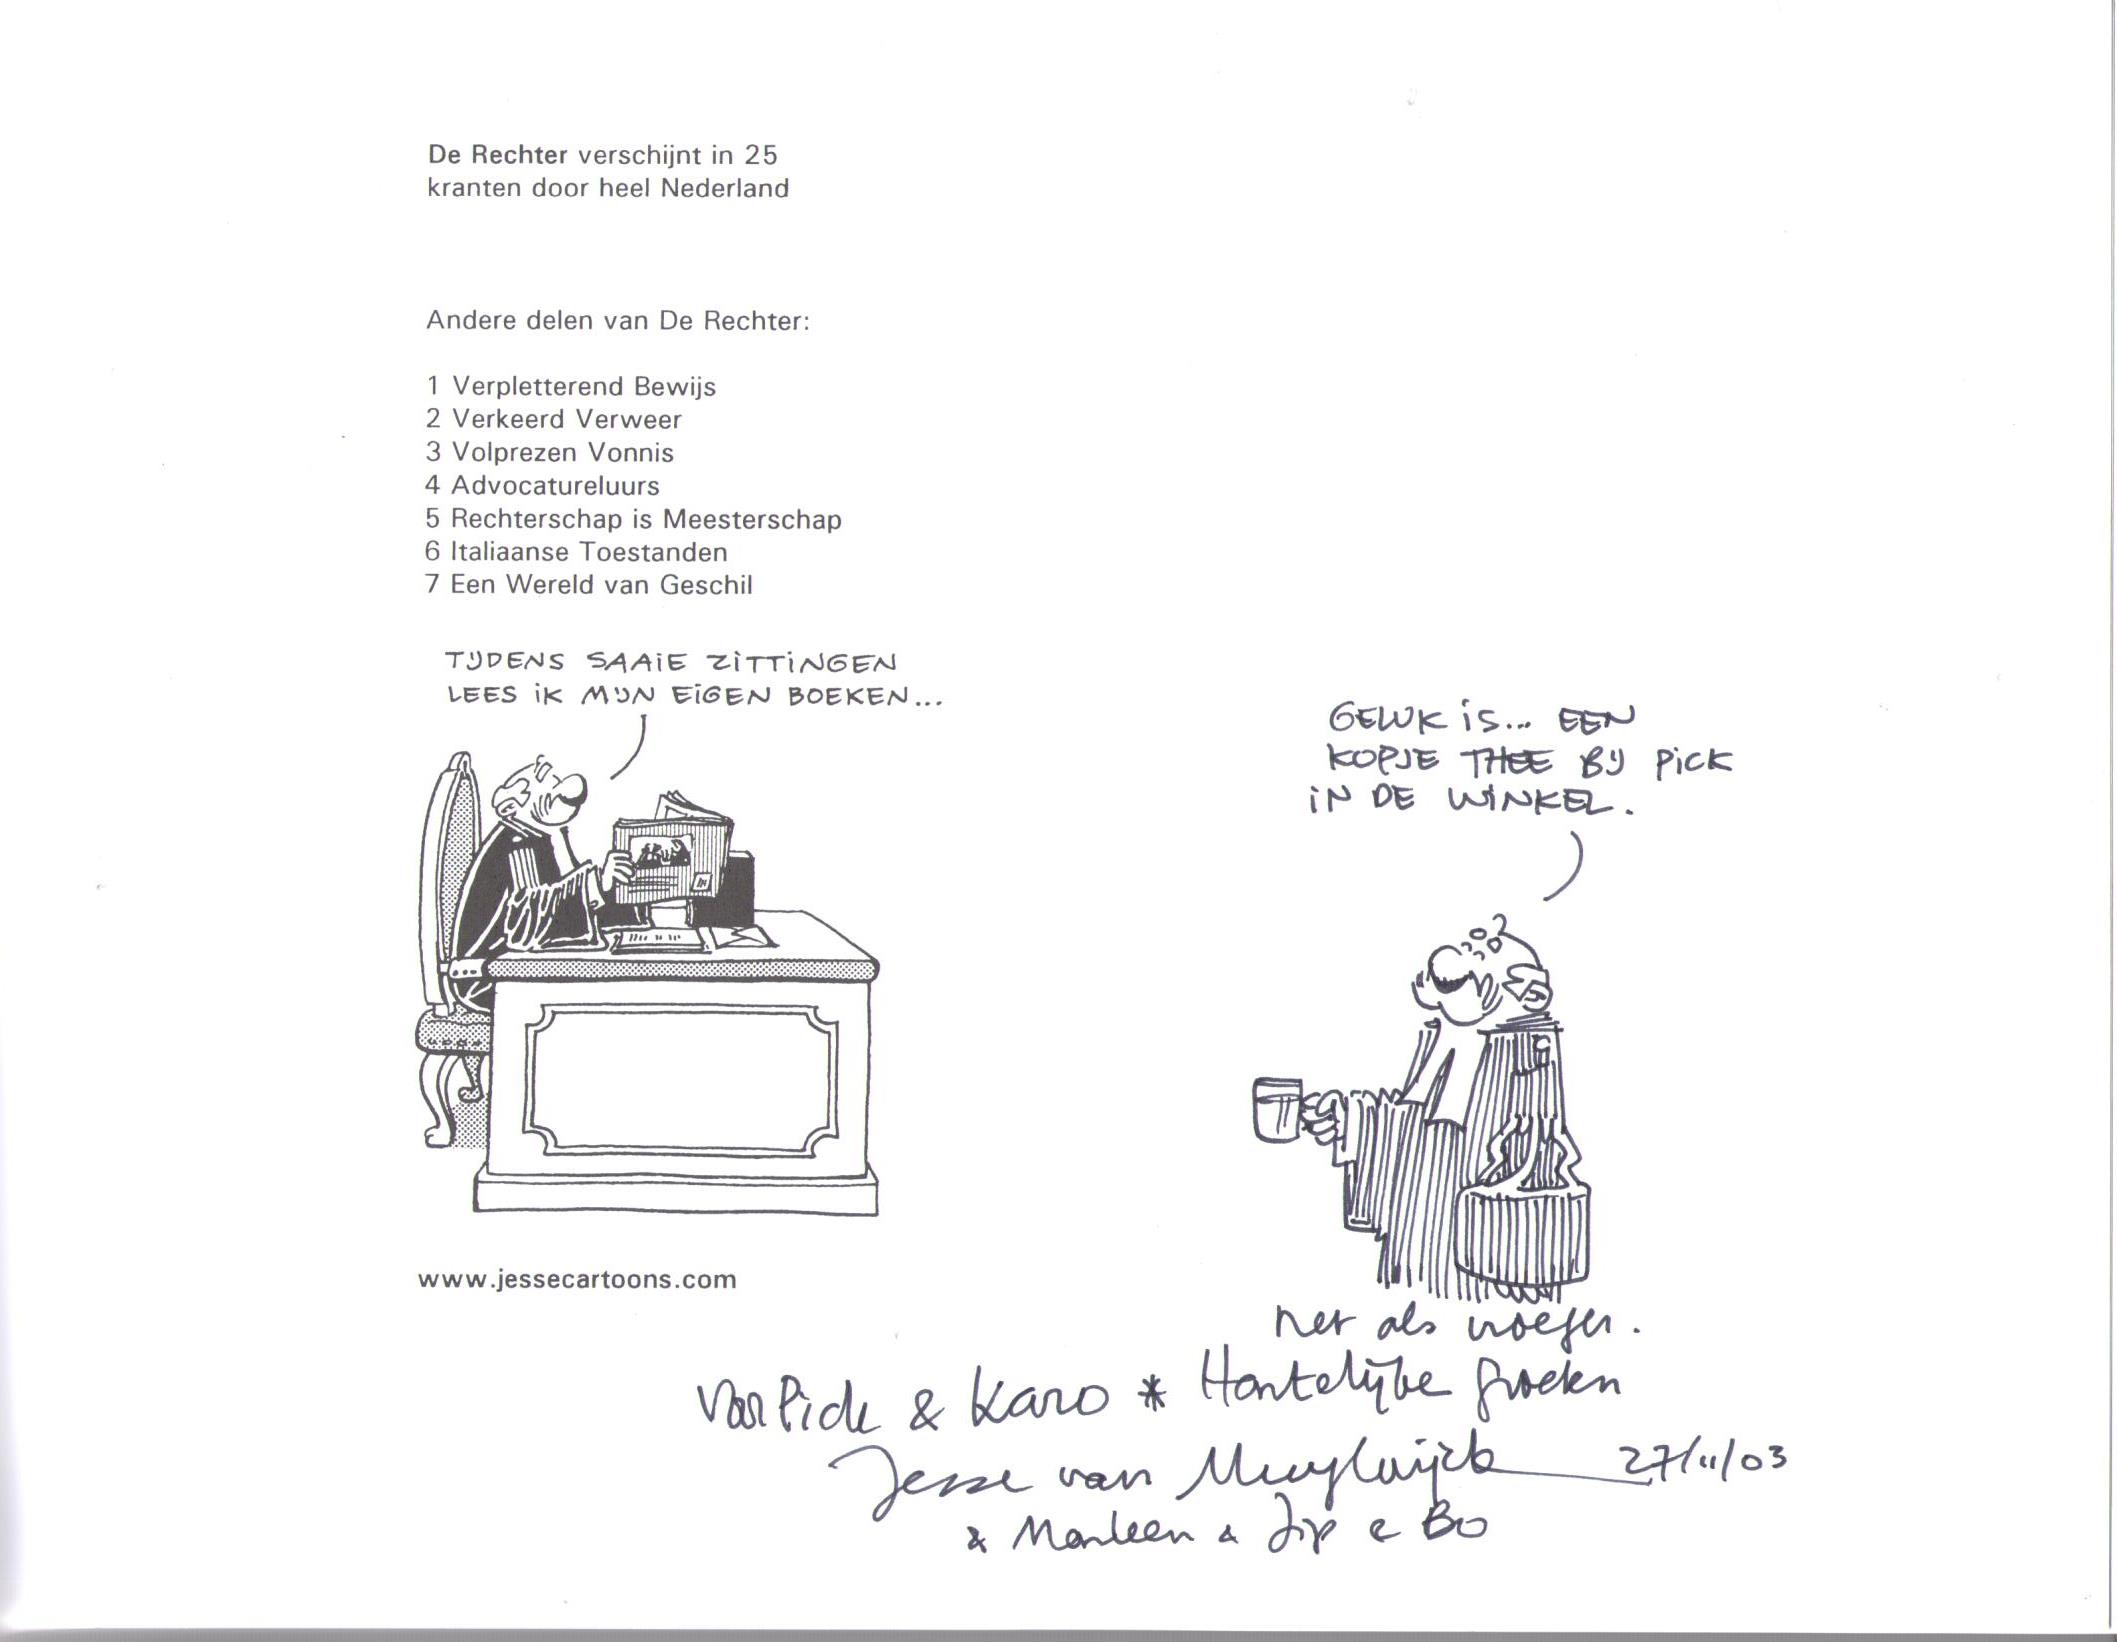 De Rechter verschijnt in 25
kranten door heel Nederland
Andere delen van De Rechter:
1 Verpletterend Bewijs
2 Verkeerd Verweer
3 Volprezen Vonnis
4 Advocatureluurs
5 Rechterschap is Meesterschap
6 Italiaanse Toestanden
7 Een Wereld van Geschil
TIJDENS SAAIE ZITTINGEN
LEES IK MIJN EIGEN BOEKEN...
www.jessecartoons.com
GELUK IS... EEN
KOPJE THEE BIJ PICK
IN DE WINKEL.
net als vroeger.
Voor Pick & Karo * Hartelijke groeten
Jesse van Muylwijck 27/11/03
& Marleen & Jip & Bo